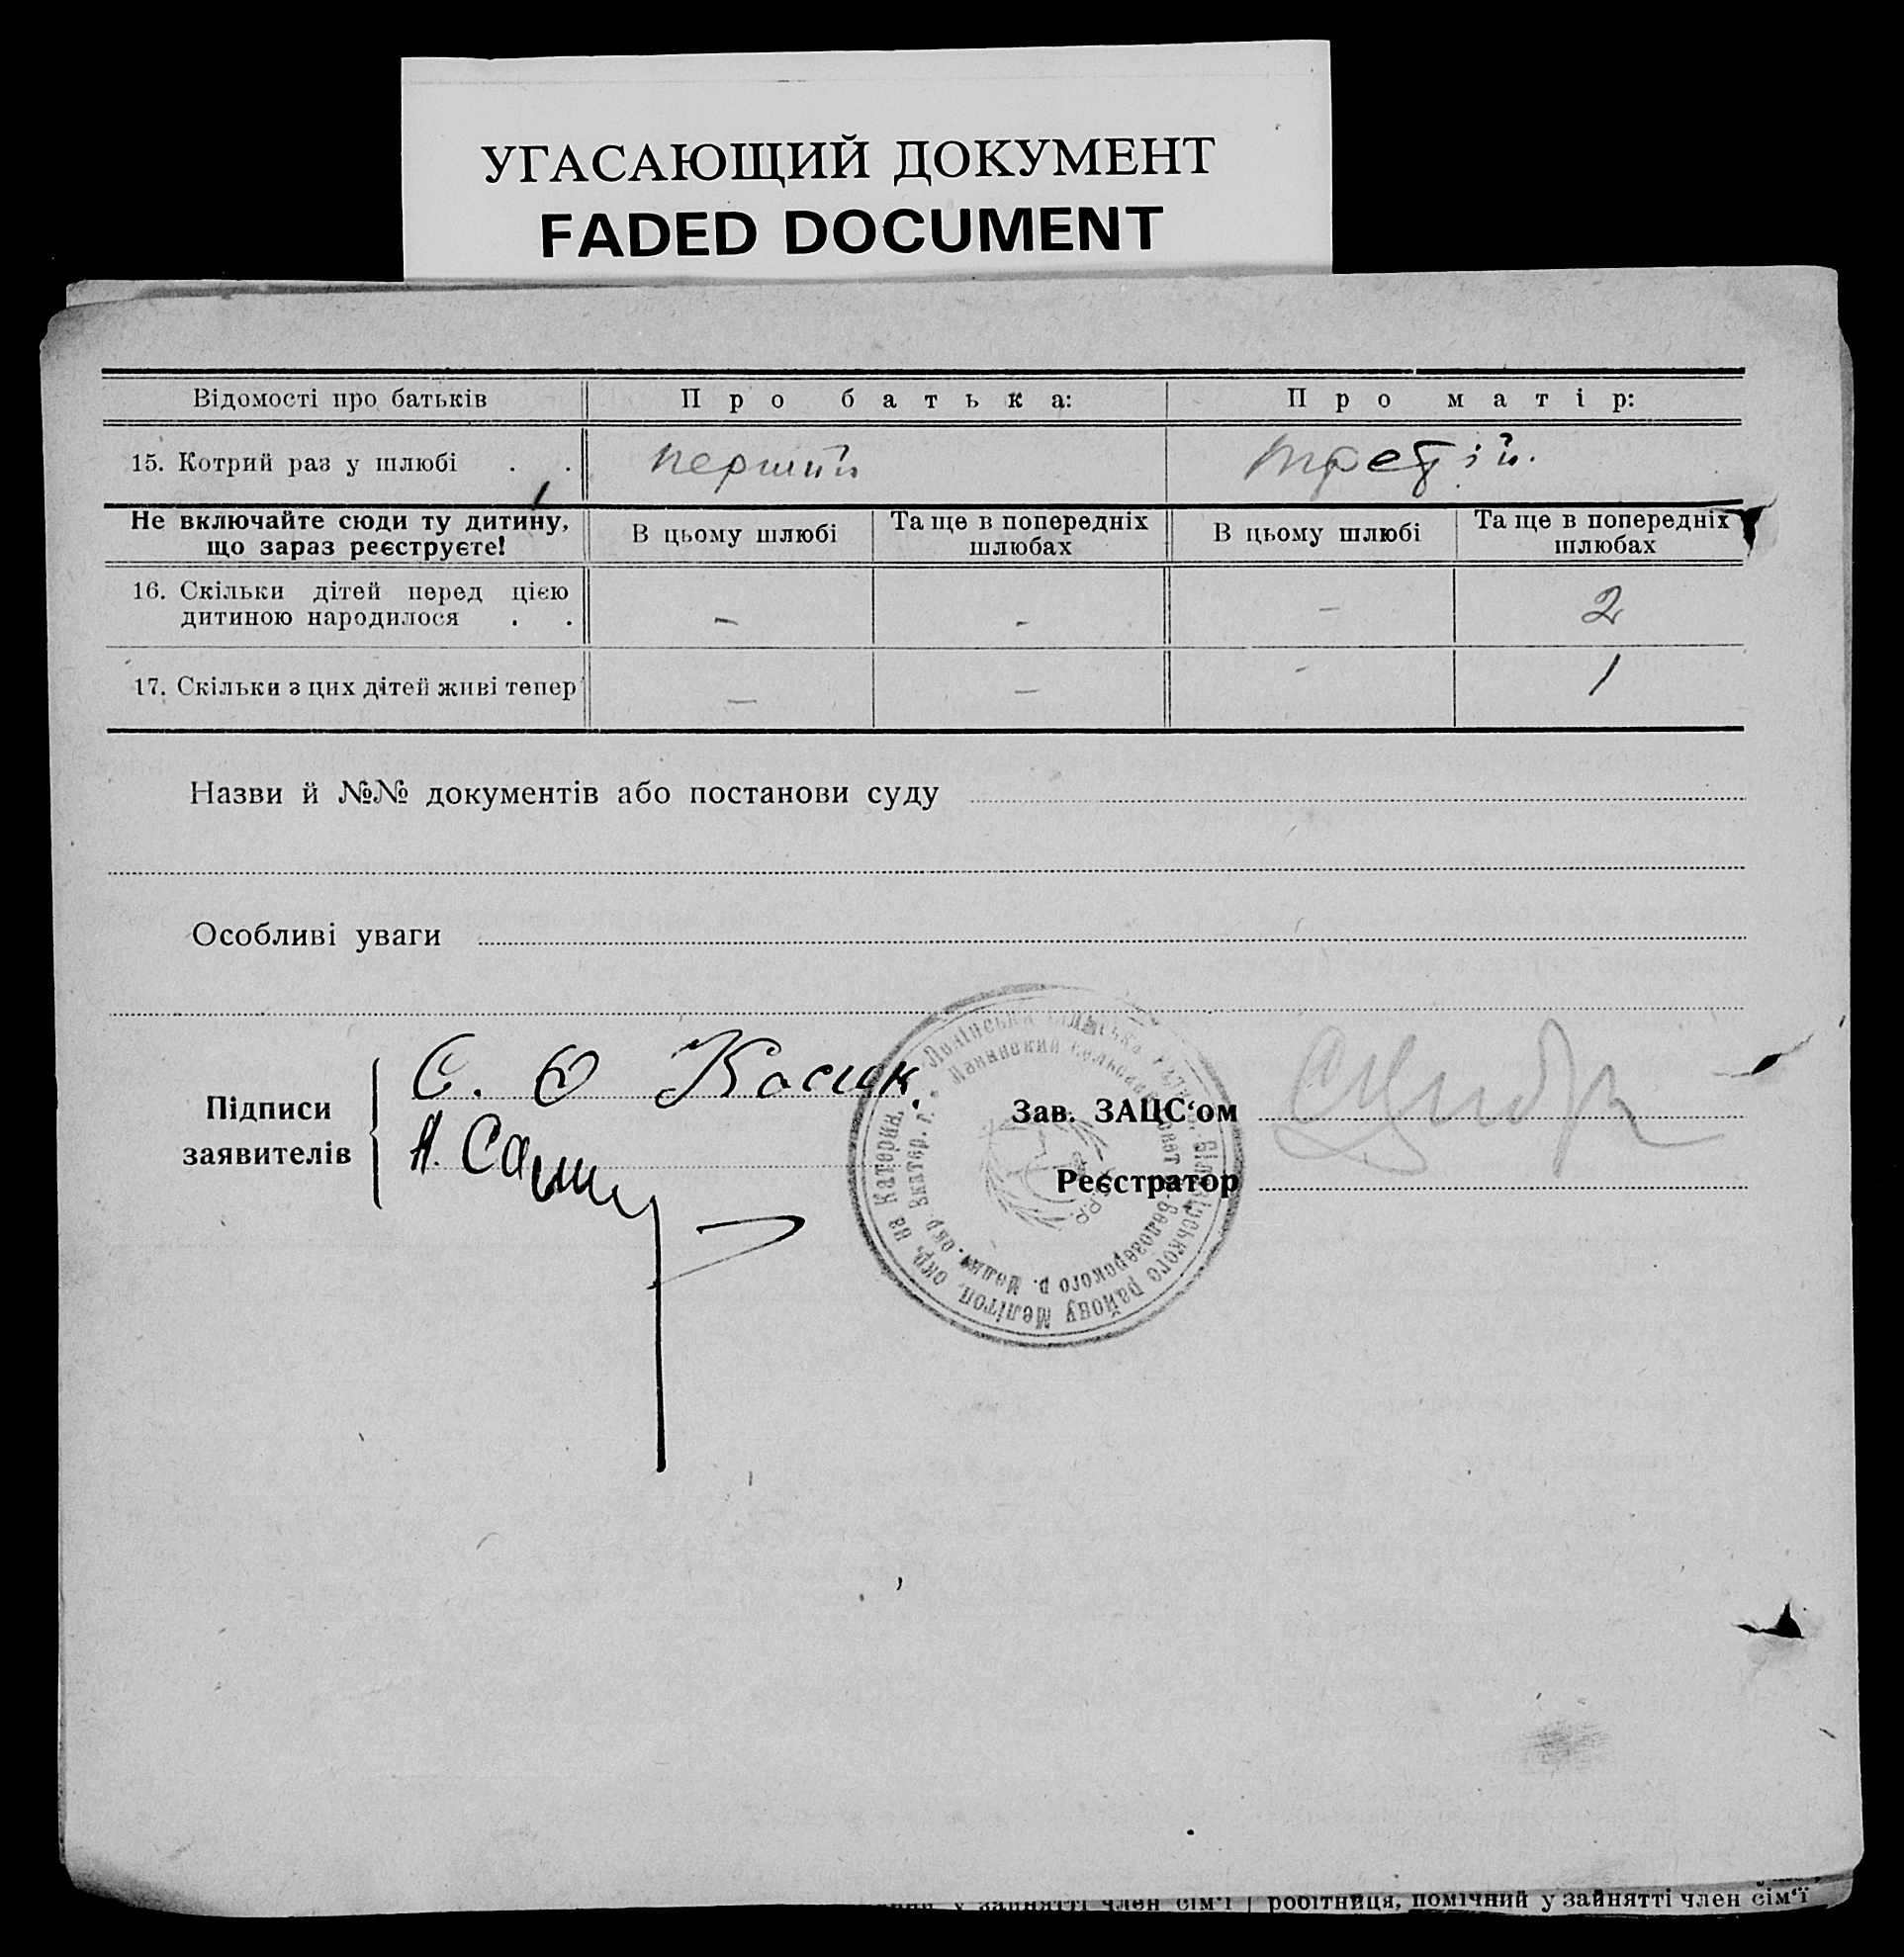 УГАСАЮЩИЙ ДОКУМЕНТ
FADED DOCUMENT
Відомості про батьків Про батька: Про матір:
15. Котрий раз у шлюбі . . перший третій.
Не включайте сюди ту дитину, що зараз реєструєте! В цьому шлюбі Та ще в попередніх шлюбах В цьому шлюбі Та ще в попередніх шлюбах
16. Скільки дітей перед цією
дитиною народилося . . - - - 2
17. Скільки з цих дітей живі тепер - - - 1
Назви й №№ документів або постанови суду
Особливі уваги
Підписи
заявителів
С. О
Зав. ЗАЦС‘ом
Реєстратор
району Мелітоп. окр. на Катерин.
робітниця, помічний у зайнятті член сім‘ї